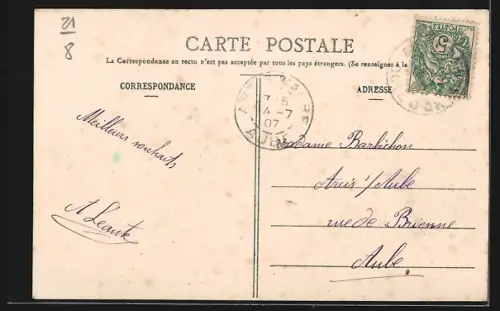 21
8
CARTE POSTALE
La Correspondance au recto n'est pas acceptée par tous les pays étrangers. (Se renseigner à la
CORRESPONDANCE
ADRESSE
7 5
4 - 7
07
AUBE
Meilleurs souhaits
Madame Barbichon
Arcis s/Aube
rue de Brienne
Aube